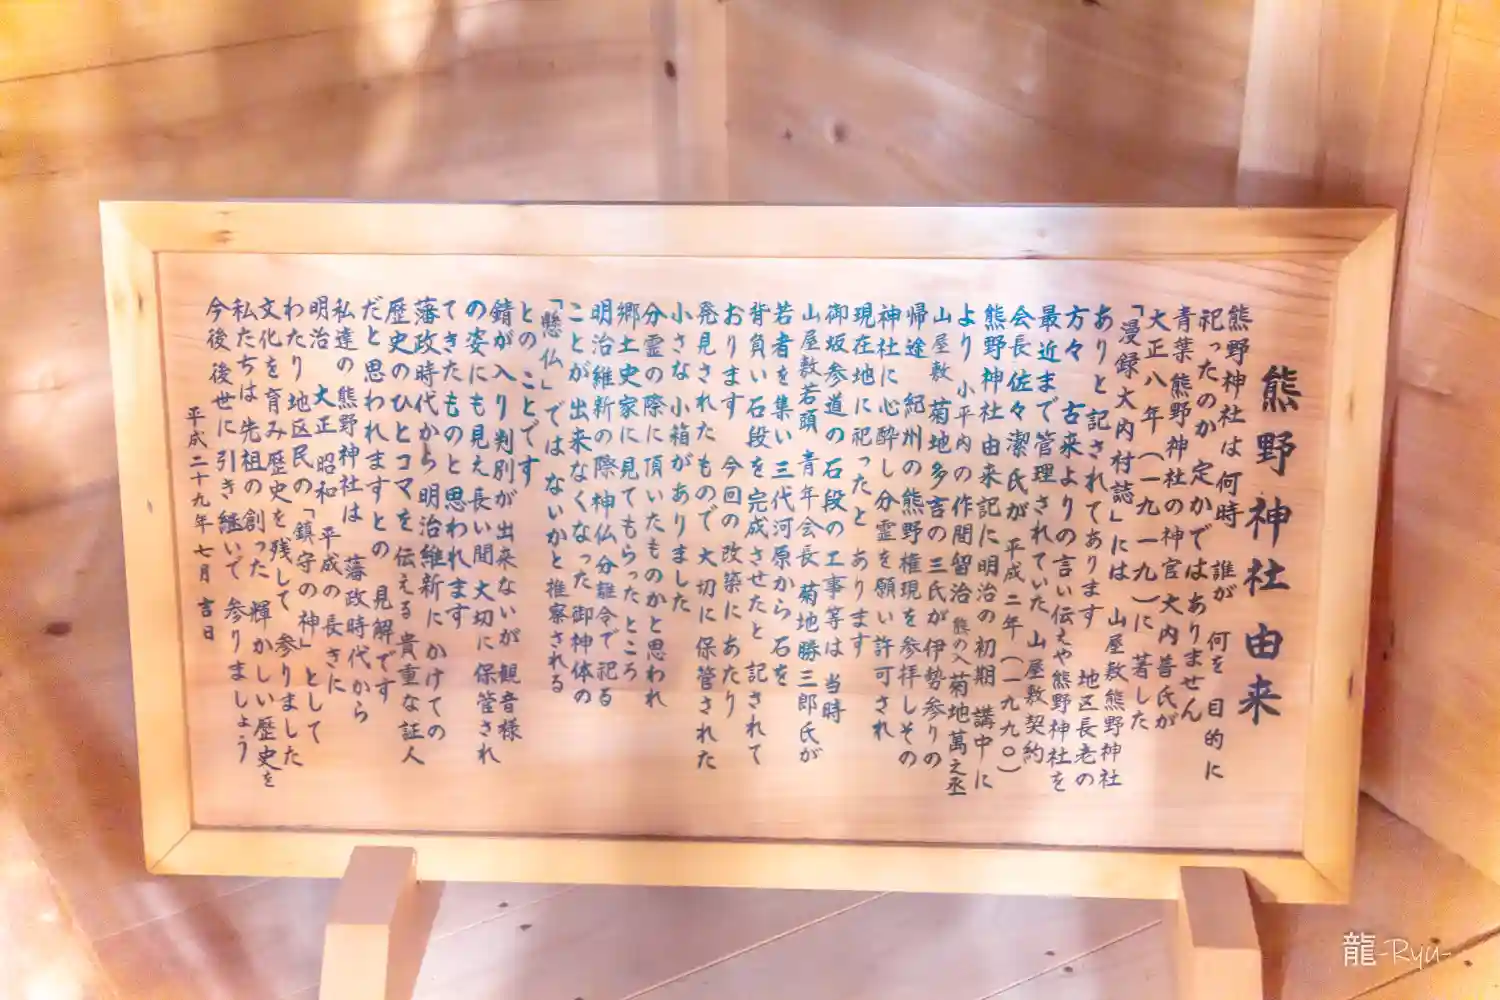 熊野神社由来
熊野神社は 何時 誰が 何を 目的に
祀ったのか 定かではありません
青葉 熊野神社の神官大内普氏が
大正八年(一九一九)に 著した
「漫録大内村誌」には 山屋敷熊野神社
ありと 記されてあります 地区長老の
方々 古来よりの言い伝えや熊野神社を
最近まで管理されていた 山屋敷契約
会長佐々潔氏が 平成二年(一九九〇)
熊野神社由来記に明治の初期 講中に
より 小平内の作間留治 熊の入菊地萬之丞
山屋敷 菊地多吉の三氏が伊勢参りの
帰途 紀州の熊野権現を参拝しその
神社に心酔し分霊を願い許可され
現在地に祀ったと あります
御坂参道の石段の工事等は 当時
山屋敷若頭 青年会長 菊地勝三郎氏が
若者を集い 三代河原から 石を
背負い石段を完成させたと 記されて
おります 今回の改築に あたり
発見されたもので 大切に 保管された
小さな 小箱がありました
分霊の際に頂いたものかと思われ
郷土史家に 見てもらったところ
明治維新の際神仏分離令で祀る
ことが出来なくなった 御神体の
「懸仏」では ないかと推察される
とのことです
錆が入り判別が出来ないが 観音様
の姿にも見え長い間 大切に 保管され
てきたものと思われます
藩政時代から明治維新に かけての
歴史のひとコマを伝える 貴重な証人
だと思われますとの 見解です
私達の熊野神社は 藩政時代から
明治 大正 昭和 平成の 長きに
わたり 地区民の「鎮守の神」として
文化を育み歴史を残して 参りました
私たちは先祖の創った 輝かしい歴史を
今後後世に引き継いで 参りましょう
平成二十九年 七月 吉日
龍-Ryu-